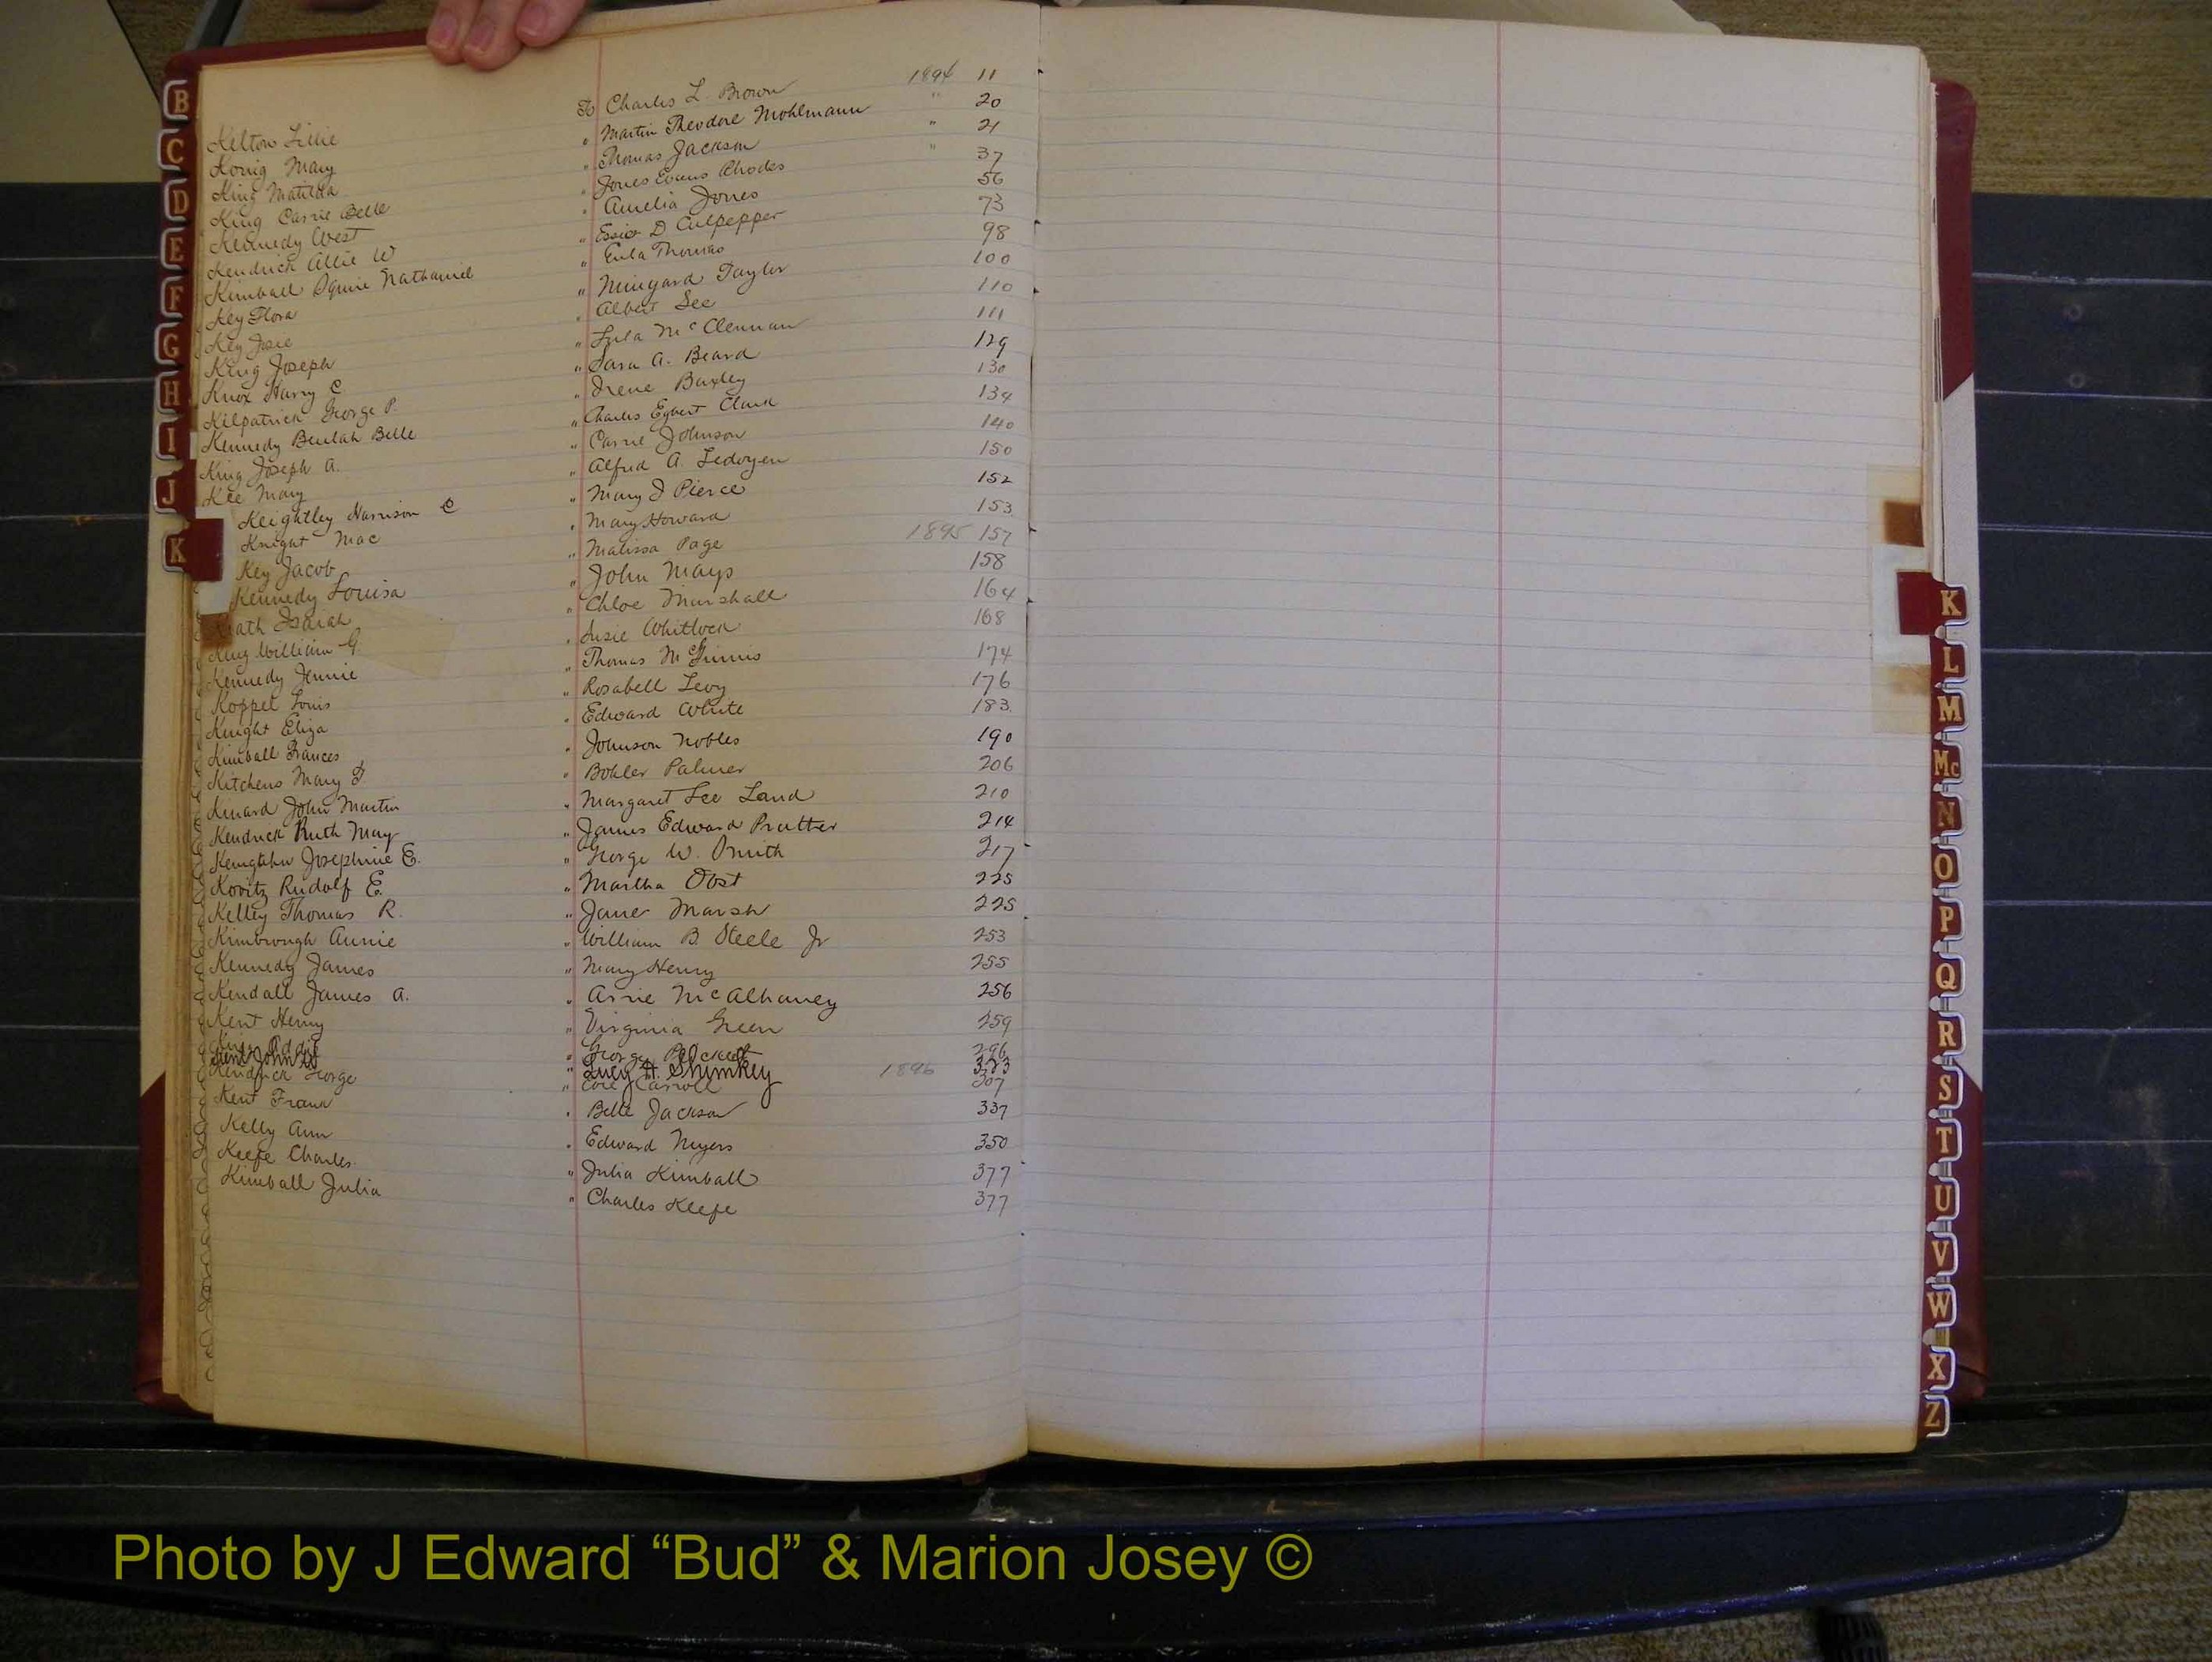 Kelton Lillie To Charles L. Brown 1894 11
Konig Mary " Martin Theodore Mohlmann " 20
King Matilda " Thomas Jackson " 21
King Carrie Belle " Jones Evans Rhodes " 37
Kennedy West " Amelia Jones 56
Kendrick Allie W " Essie D Culpepper 73
Kimball Squire Nathaniel " Eula Thomas 98
Key Flora " Minyard Taylor 100
Key Josie " Albert Lee 110
King Joseph " Lula McClennan 111
Knox Harry C " Sara A. Beard 129
Kilpatrick George P. " Irene Baxley 130
Kennedy Beulah Belle " Charles Egbert Clark 134
King Joseph A. " Carrie Johnson 140
Kee Mary " Alfred A. Ledoyen 150
Keightley Harrison C " Mary J Pierce 152
Knight Mac " Mary Howard 153
Key Jacob " Malissa Page 1895 157
Kennedy Louisa " John Mays 158
Isaiah " Chloe Marshall 164
King William G. " Susie Whitlock 168
Kennedy Jennie " Thomas McGinnis 174
Koppel Louis " Rosabell Levy 176
Knight Eliza " Edward White 183
Kimball Frances " Johnson Nobles 190
Kitchens Mary " Bohler Palmer 206
Kinard John Martin " Margaret Lee Land 210
Kendrick Ruth May " James Edward Prather 214
Josephine E. " George W. Smith 217
Kovitz Rudolf E. " Martha Obst 225
Kelley Thomas R. " Jane Marsh 225
Kimbrough Annie " William B. Steele Jr 253
Kennedy James " Mary Henry 255
Kendall James A. " Arrie McAlhaney 256
Kent Henry " Virginia Green 259
King Addie " George 296
John " Lucy H. Shumkey 1896 323
Kendrick George " Carroll 307
Kent Frank " Belle Jackson 337
Kelly Ann " Edward Myers 350
Keefe Charles " Julia Kimball 377
Kimball Julia " Charles Keefe 377
B
C
D
E
F
G
H
I
J
K
K
L
M
Mc
N
O
P
Q
R
S
T
U
V
W
X
Z
Photo by J Edward “Bud” & Marion Josey ©